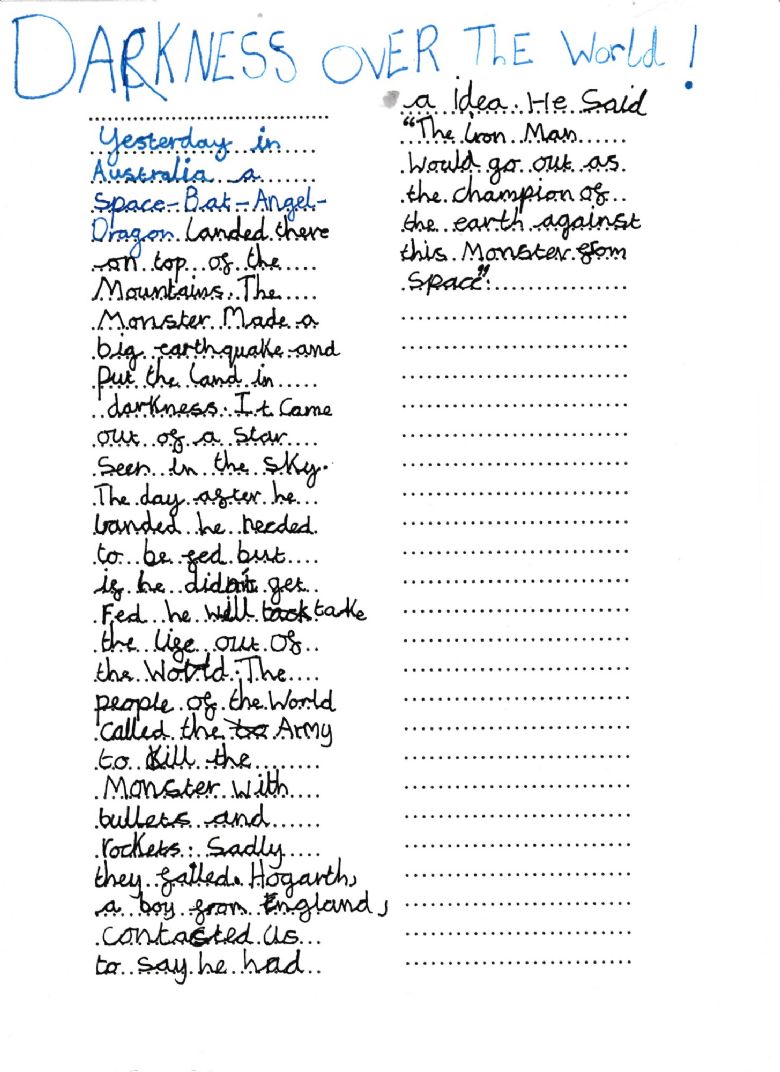 DARKNESS OVER THE World!
Yesterday in
Australia a
Space-Bat-Angel-
Dragon landed there
on top of the
Mountains. The
Monster Made a
big earthquake and
put the land in
darkness. It came
out of a star
seen in the sky.
The day after he
landed he needed
to be fed but
if he didn't get
Fed he will take
the life out of
the World. The
people of the World
called the Army
to kill the
Monster with
bullets and
rockets. Sadly
they failed. Hogarth,
a boy from England,
contacted us
to say he had
a idea. He Said
"The iron Man
Would go out as
the champion of
the earth against
this Monster from
Space".